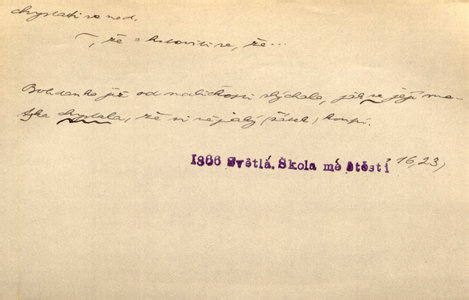 chystati se ned.
~, že = hotoviti se, že...
Bohdanka již od maličkosti slýchala, jak se její ma-
tka chystala, že si nějaký (šátek) koupí.
1866 Světlá, Škola mé štěstí 16,23,